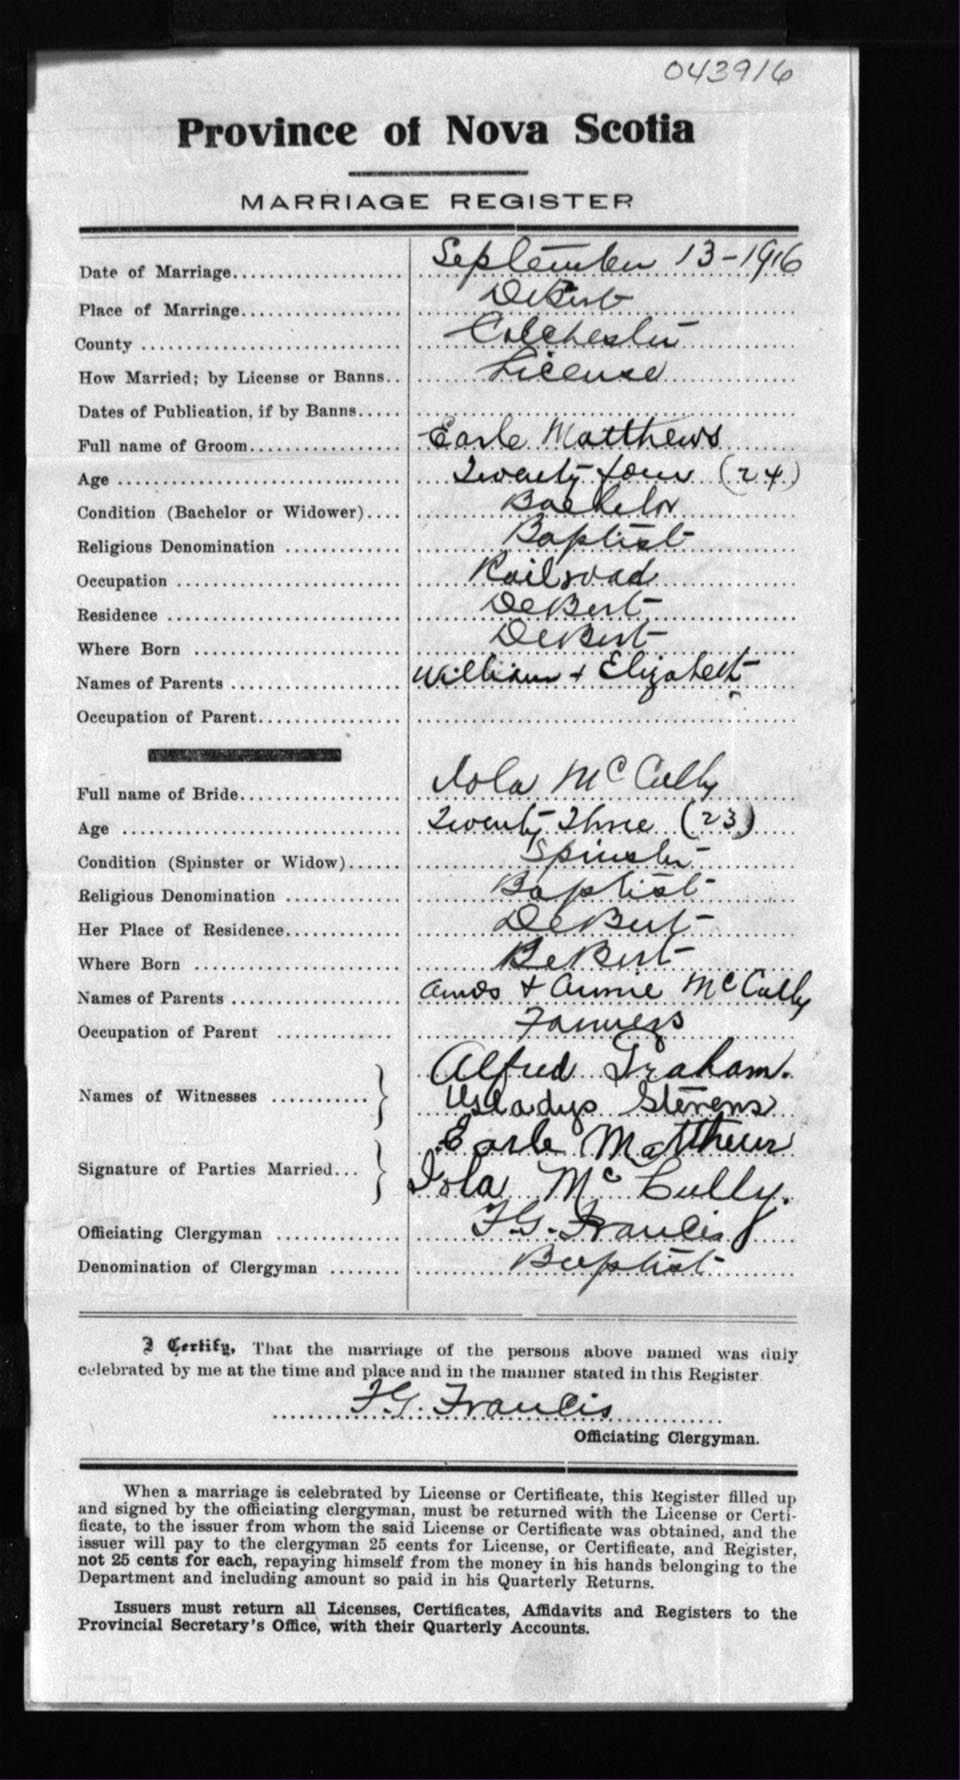 043916
Province of Nova Scotia
MARRIAGE REGISTER
Date of Marriage................... September 13-1916
Place of Marriage.................. DeBert
County ............................ Colchester
How Married; by License or Banns.. License
Dates of Publication, if by Banns.....
Full name of Groom................ Earle Matthews
Age ............................... Twenty four (24)
Condition (Bachelor or Widower).... Bachelor
Religious Denomination ............ Baptist
Occupation ........................ Railroad
Residence ......................... DeBert
Where Born ........................ DeBert
Names of Parents .................. William + Elizabeth
Occupation of Parent...............
Full name of Bride................. Iola McCully
Age ............................... Twenty Three (23)
Condition (Spinster or Widow)...... Spinster
Religious Denomination ............ Baptist
Her Place of Residence............. DeBert
Where Born ........................ DeBert
Names of Parents .................. Amos + Annie McCully
Occupation of Parent .............. Farmers
Names of Witnesses ........... } Alfred Graham.
Gladys Stevens
Signature of Parties Married... } Earle Matthews
Iola McCully.
Officiating Clergyman ............. F.G. Francis
Denomination of Clergyman ........ Baptist
I Certify, That the marriage of the persons above named was duly
celebrated by me at the time and place and in the manner stated in this Register.
F.G. Francis
Officiating Clergyman.
When a marriage is celebrated by License or Certificate, this Register filled up
and signed by the officiating clergyman, must be returned with the License or Certi-
ficate, to the issuer from whom the said License or Certificate was obtained, and the
issuer will pay to the clergyman 25 cents for License, or Certificate, and Register,
not 25 cents for each, repaying himself from the money in his hands belonging to the
Department and including amount so paid in his Quarterly Returns.
Issuers must return all Licenses, Certificates, Affidavits and Registers to the
Provincial Secretary's Office, with their Quarterly Accounts.